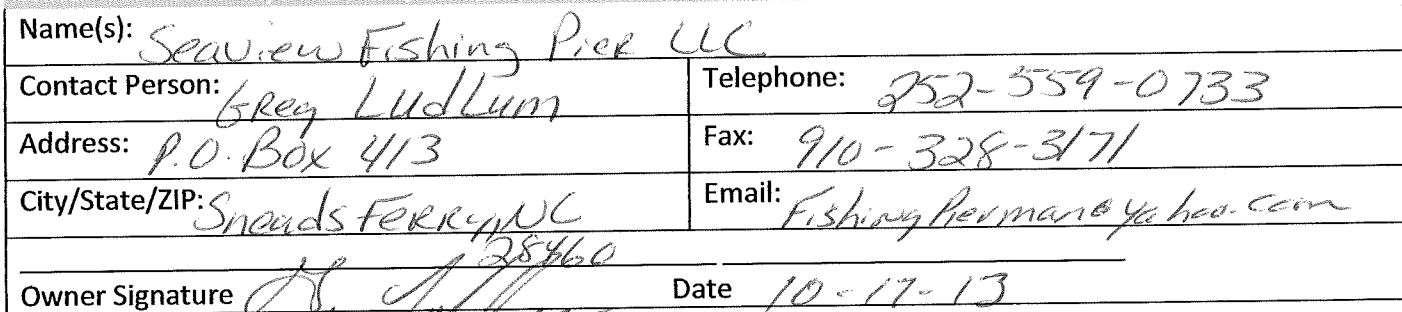 Name(s): Seaview Fishing Pier LLC
Contact Person: Greg Ludlum Telephone: 252-559-0733
Address: P.O. Box 413 Fax: 910-328-3171
City/State/ZIP: Sneads Ferry, NC Email: FishingPierman@yahoo.com
28460
Owner Signature Date 10-17-13